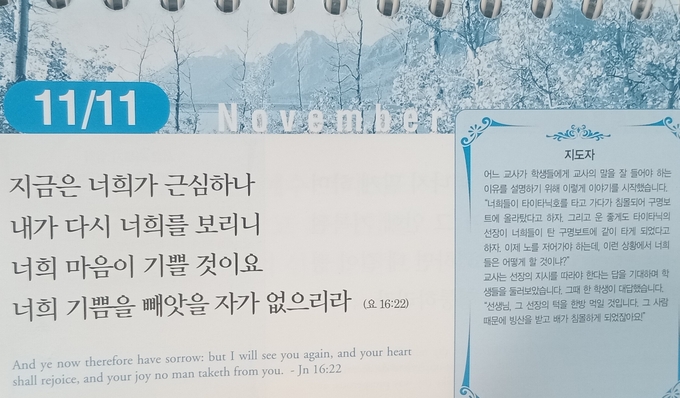 11/11
November
지금은 너희가 근심하나
내가 다시 너희를 보리니
너희 마음이 기쁠 것이요
너희 기쁨을 빼앗을 자가 없으리라 (요 16:22)
And ye now therefore have sorrow: but I will see you again, and your heart
shall rejoice, and your joy no man taketh from you. - Jn 16:22
지도자
어느 교사가 학생들에게 교사의 말을 잘 들어야 하는
이유를 설명하기 위해 이렇게 이야기를 시작했습니다.
"너희들이 타이타닉호를 타고 가다가 침몰되어 구명보
트에 올라탔다고 하자. 그리고 운 좋게도 타이타닉의
선장이 너희들이 탄 구명보트에 같이 타게 되었다고
하자. 이제 노를 저어가야 하는데, 이런 상황에서 너희
들은 어떻게 할 것이냐?"
교사는 선장의 지시를 따라야 한다는 답을 기대하며 학
생들을 둘러보았습니다. 그때 한 학생이 대답했습니다.
"선생님, 그 선장의 턱을 한방 먹일 것입니다. 그 사람
때문에 빙산을 받고 배가 침몰하게 되었잖아요!"